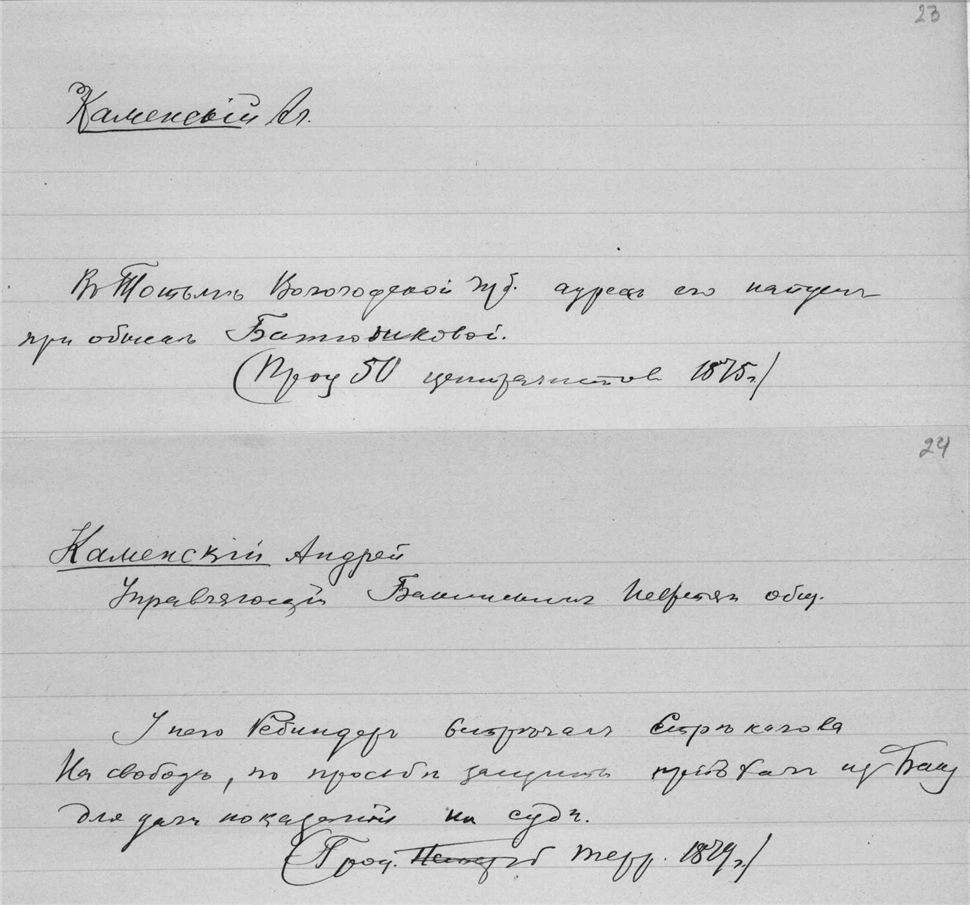 23
Каменскій Ал.
Въ Тотьмѣ Вологодской губ. адресъ его найденъ
при обыскѣ Батюшковой.
(Проц 50 централистовъ 1875 г.)
24
Каменскій Андрей
Управляющій Бакинскимъ Нефтян общ.
У него Ребиндеръ встрѣчалъ Стрѣкалова
На свободѣ, по просьбѣ защиты пріѣхалъ из Баку
для дачи показаній на судѣ.
(Проц. терр. 1879 г.)